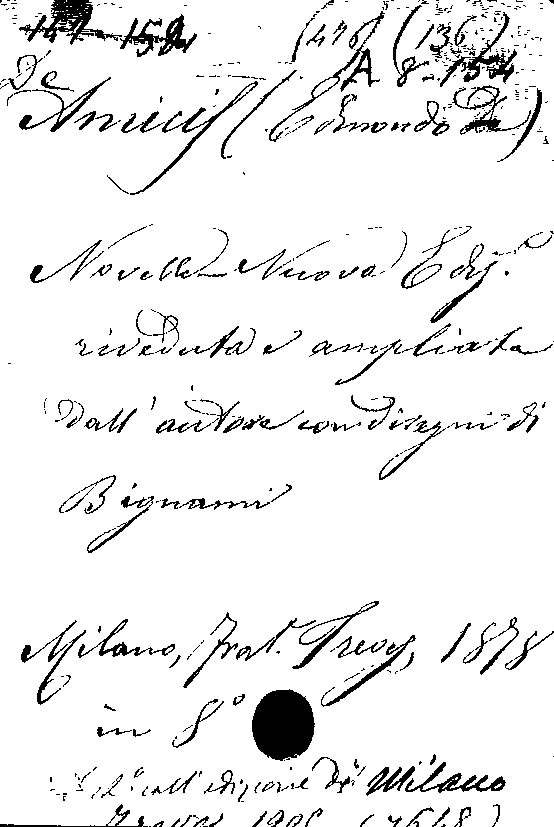 147 158
(476) (136)
A 8-154
De
Amicis (Edmondo De)
Novelle Nuova Ediz.e
riveduta e ampliata
dall'autore con disegni di
Bignami
Milano, Frat. Treves, 1878
in 8°
2° coll' edizione di Milano
Treves 1908 (7648)